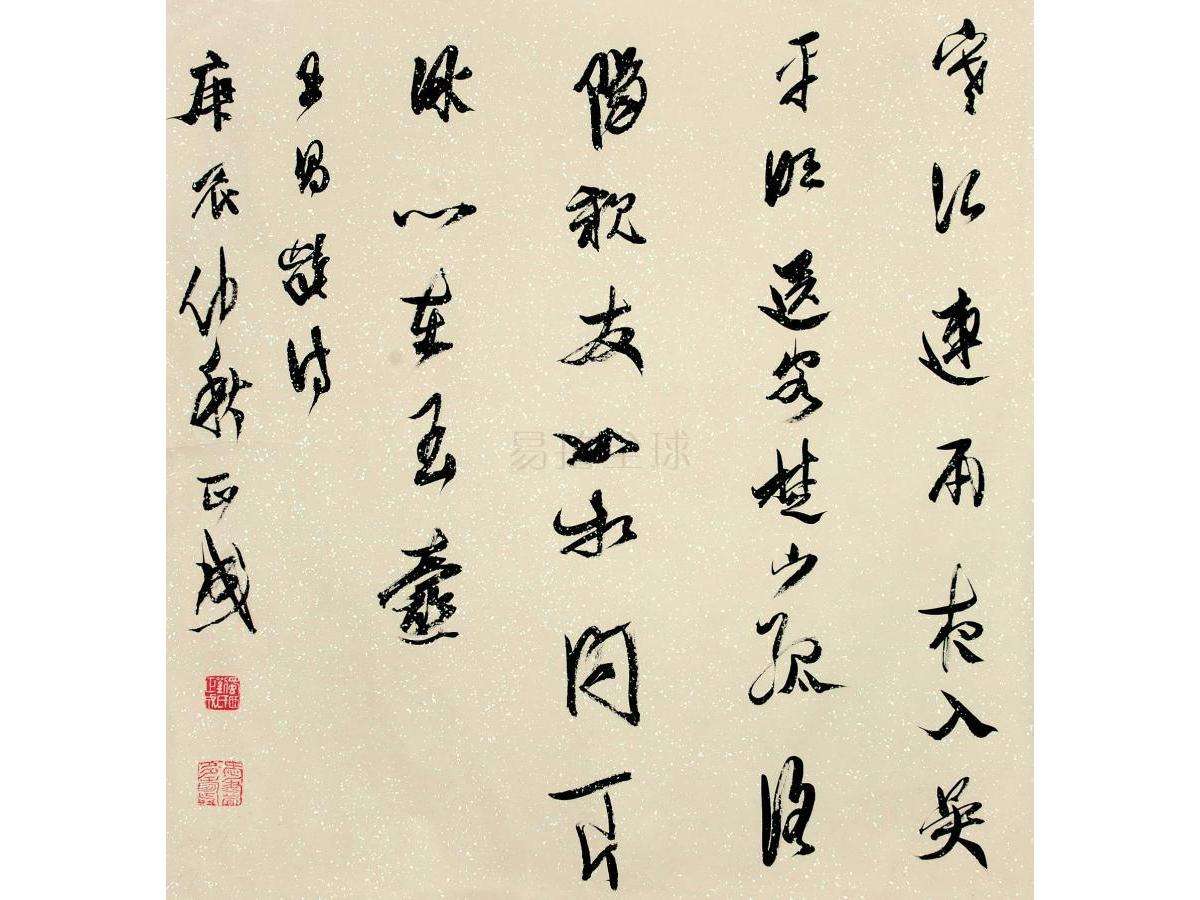 寒江連雨夜入吴
平明送客楚山孤洛
陽親友如相問一片
冰心在玉壺
王昌齡詩
庚辰仲秋正成
易拍全球